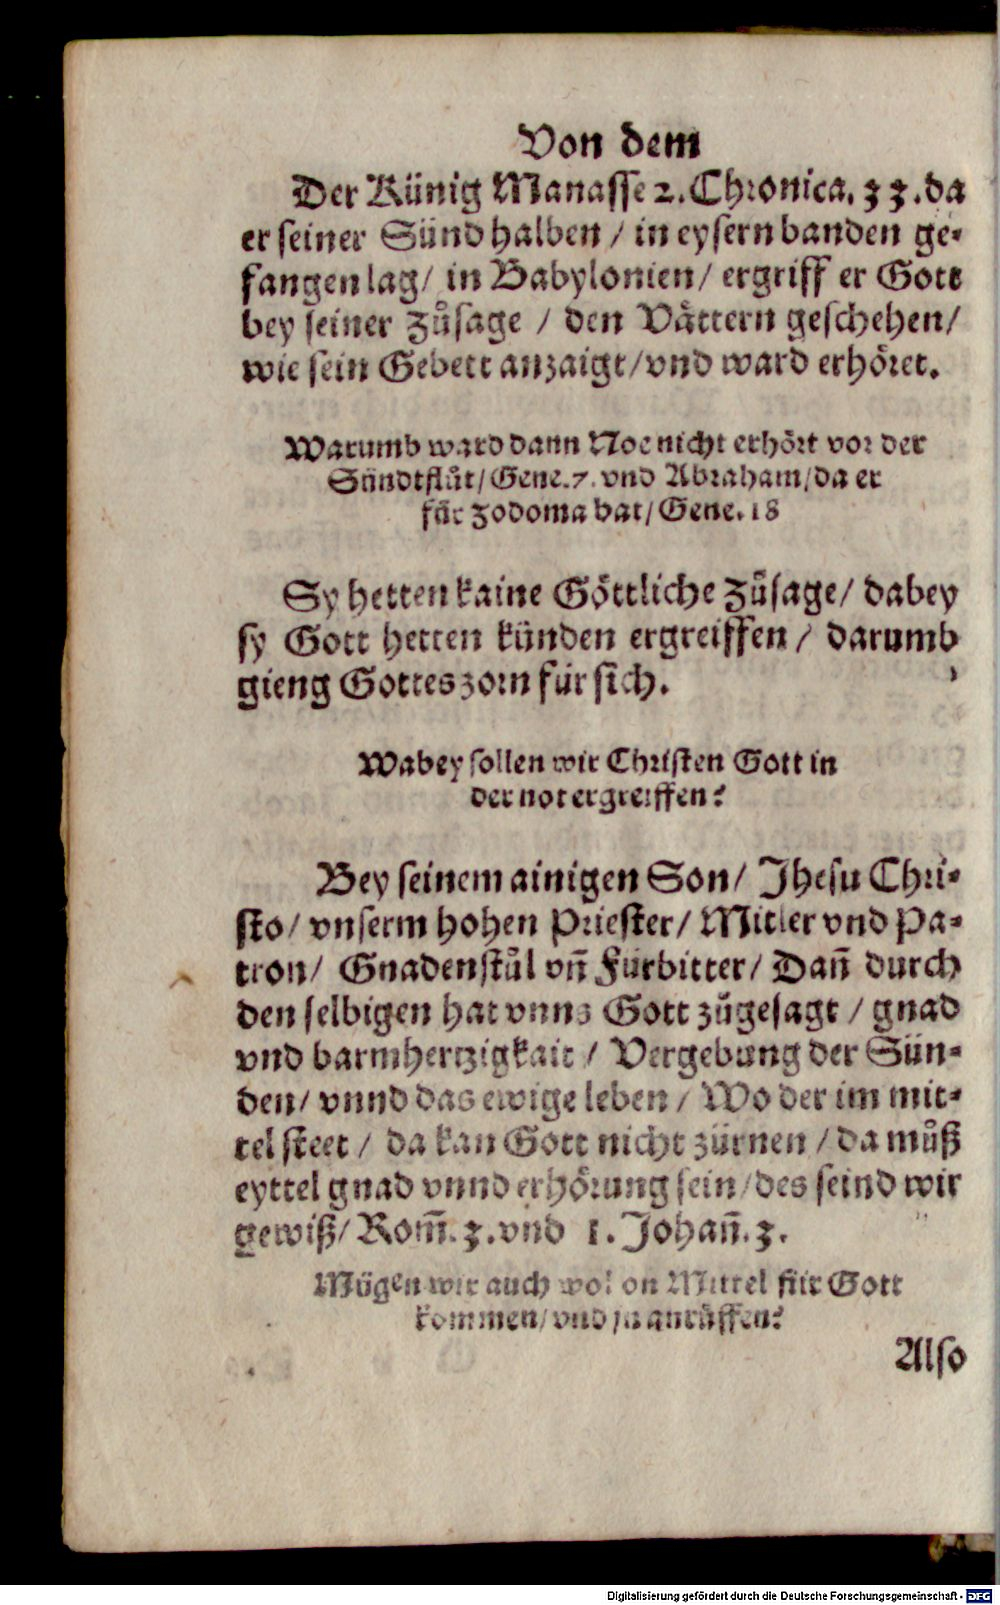 Von dem
Der Künig Manasse 2. Chronica. 33. da
er seiner Sünd halben / in eysern banden ge-
fangen lag / in Babylonien / ergriff er Gott
bey seiner Zůsage / den Vättern geschehen /
wie sein Gebett anzaigt / vnd ward erhöret.
Warumb ward dann Noe nicht erhört vor der
Sündtflůt / Gene. 7. vnd Abraham / da er
für Zodoma bat / Gene. 18
Sy hetten kaine Göttliche Zůsage / dabey
sy Gott hetten künden ergreiffen / darumb
gieng Gottes zorn für sich.
Wabey sollen wir Christen Gott in
der not ergreiffen?
Bey seinem ainigen Son / Jhesu Chri-
sto / vnserm hohen Priester / Mitler vnd Pa-
tron / Gnadenstůl vn̄ Fürbitter / Dan̄ durch
den selbigen hat vnns Gott zůgesagt / gnad
vnd barmhertzigkait / Vergebung der Sün-
den / vnnd das ewige leben / Wo der im mit-
tel steet / da kan Gott nicht zürnen / da můß
eyttel gnad vnnd erhörung sein / des seind wir
gewiß / Rom̄. 3. vnd 1. Johan̄. 3.
Mügen wir auch wol on Mittel für Gott
kommen / vnd jn anrůffen?
Also
Digitalisierung gefördert durch die Deutsche Forschungsgemeinschaft - DFG